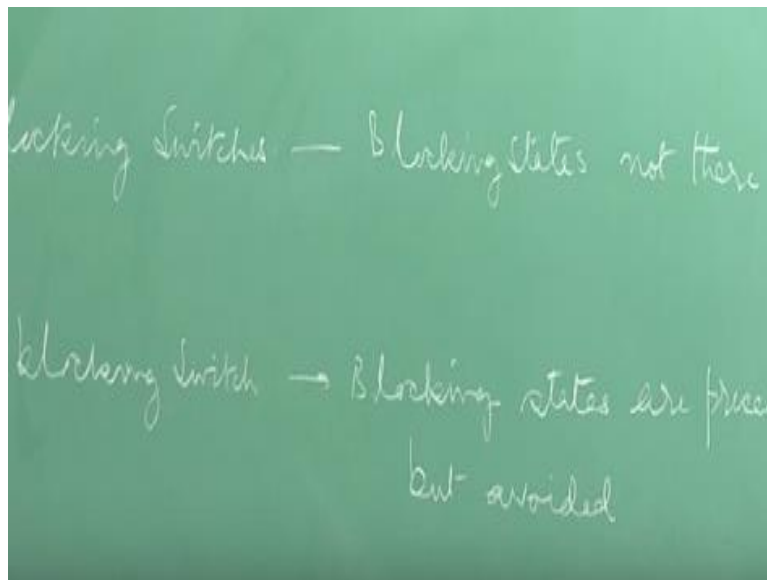 locking Switches — Blocking states not there
blocking Switch → Blocking states are prese
but avoided